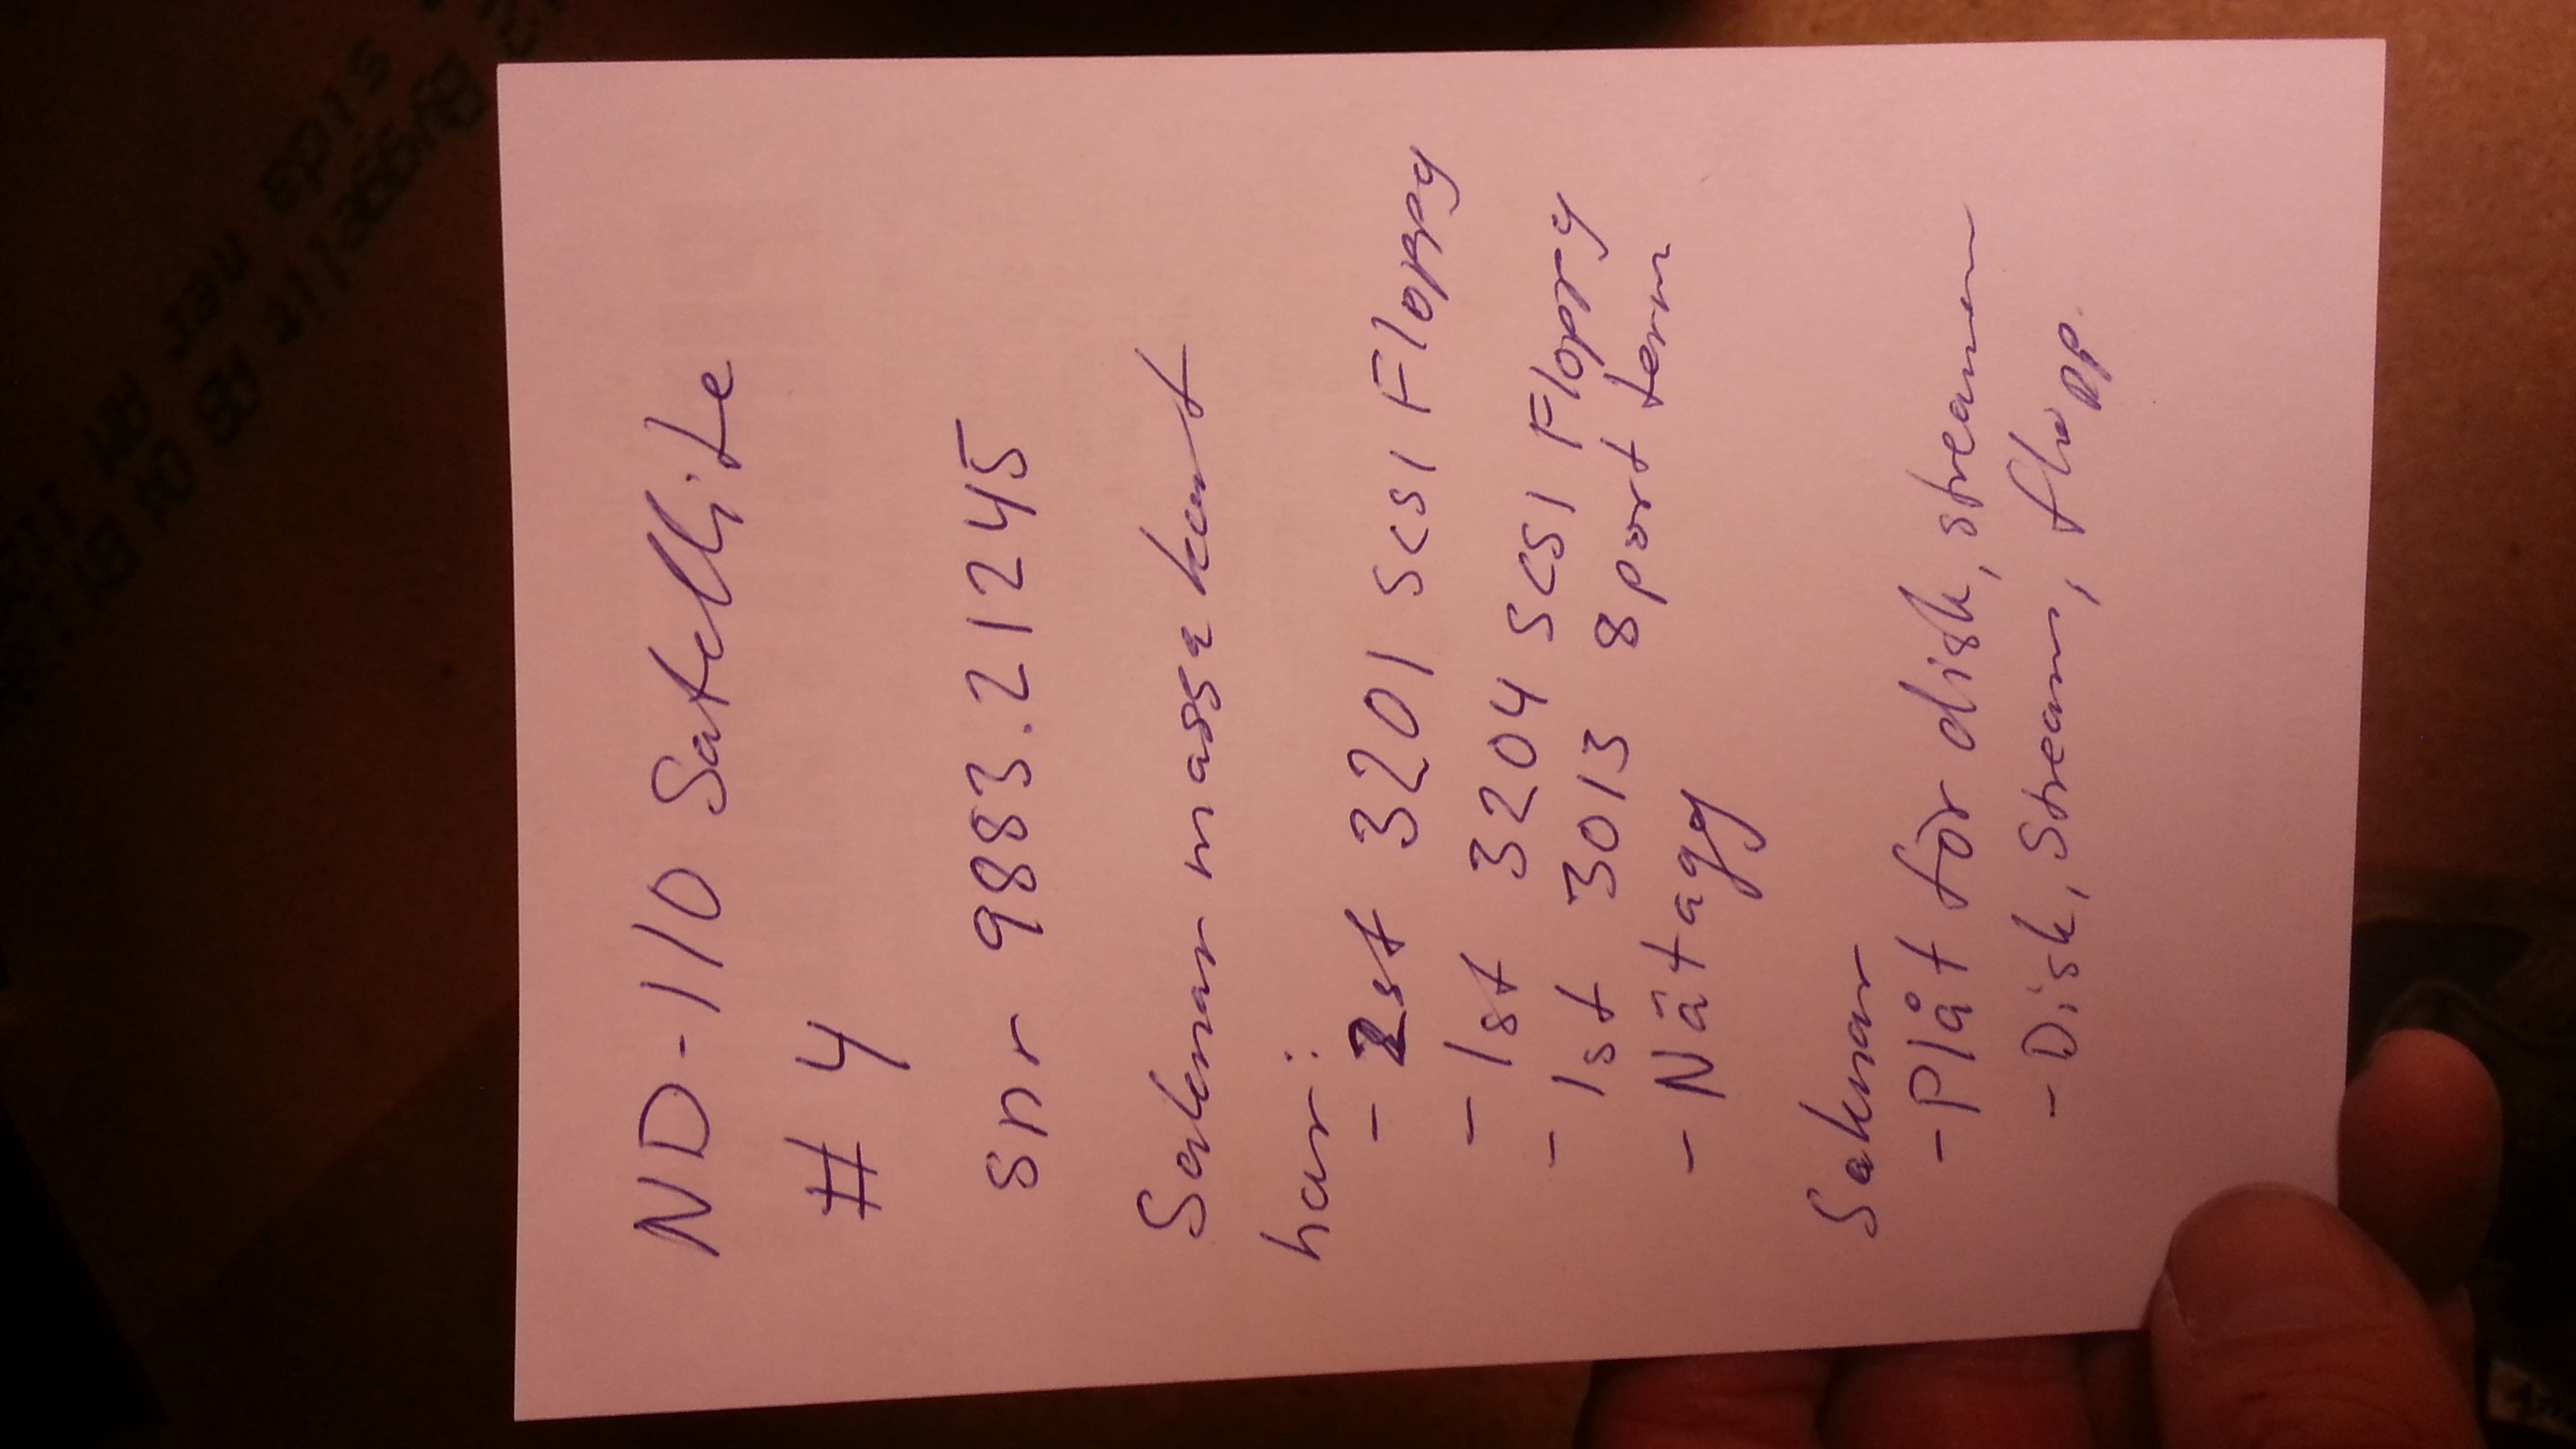 ND-110 Satellite
# 4
snr 9883.21245
Saknar massa kort
har:
- 2st 3201 SCSI Floppy
- 1st 3204 SCSI Floppy
- 1st 3013 8 port term
- Nätagg
Saknar
- Plåt för disk, streamer
- Disk, Streamer, flopp